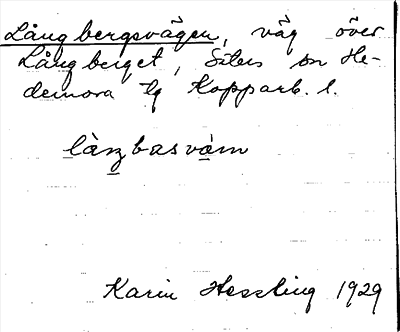 Långbergsvägen, väg över
Långberget, Säters sn He-
demora tg Kopparb. l.
làŋbasvàm
Karin Hessling 1929